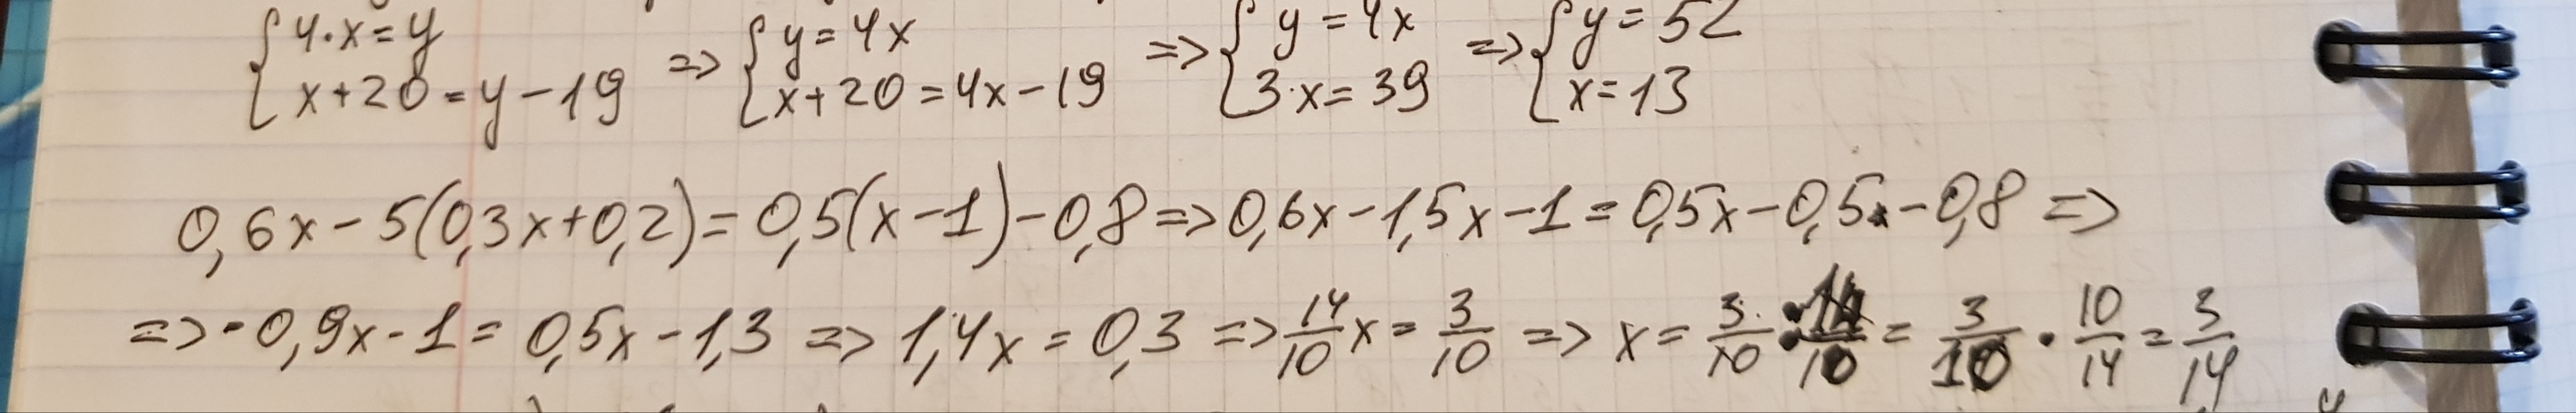 { 4·x=y => { y=4x => { y=4x => { y=52
x+20=y-19 x+20=4x-19 3·x=39 x=13
0,6x-5(0,3x+0,2)=0,5(x-1)-0,8=>0,6x-1,5x-1=0,5x-0,5-0,8 =>
=>-0,9x-1=0,5x-1,3 => 1,4x=0,3 => 14/10 x = 3/10 => x = 3/10 : 14/10 = 3/10 · 10/14 = 3/14